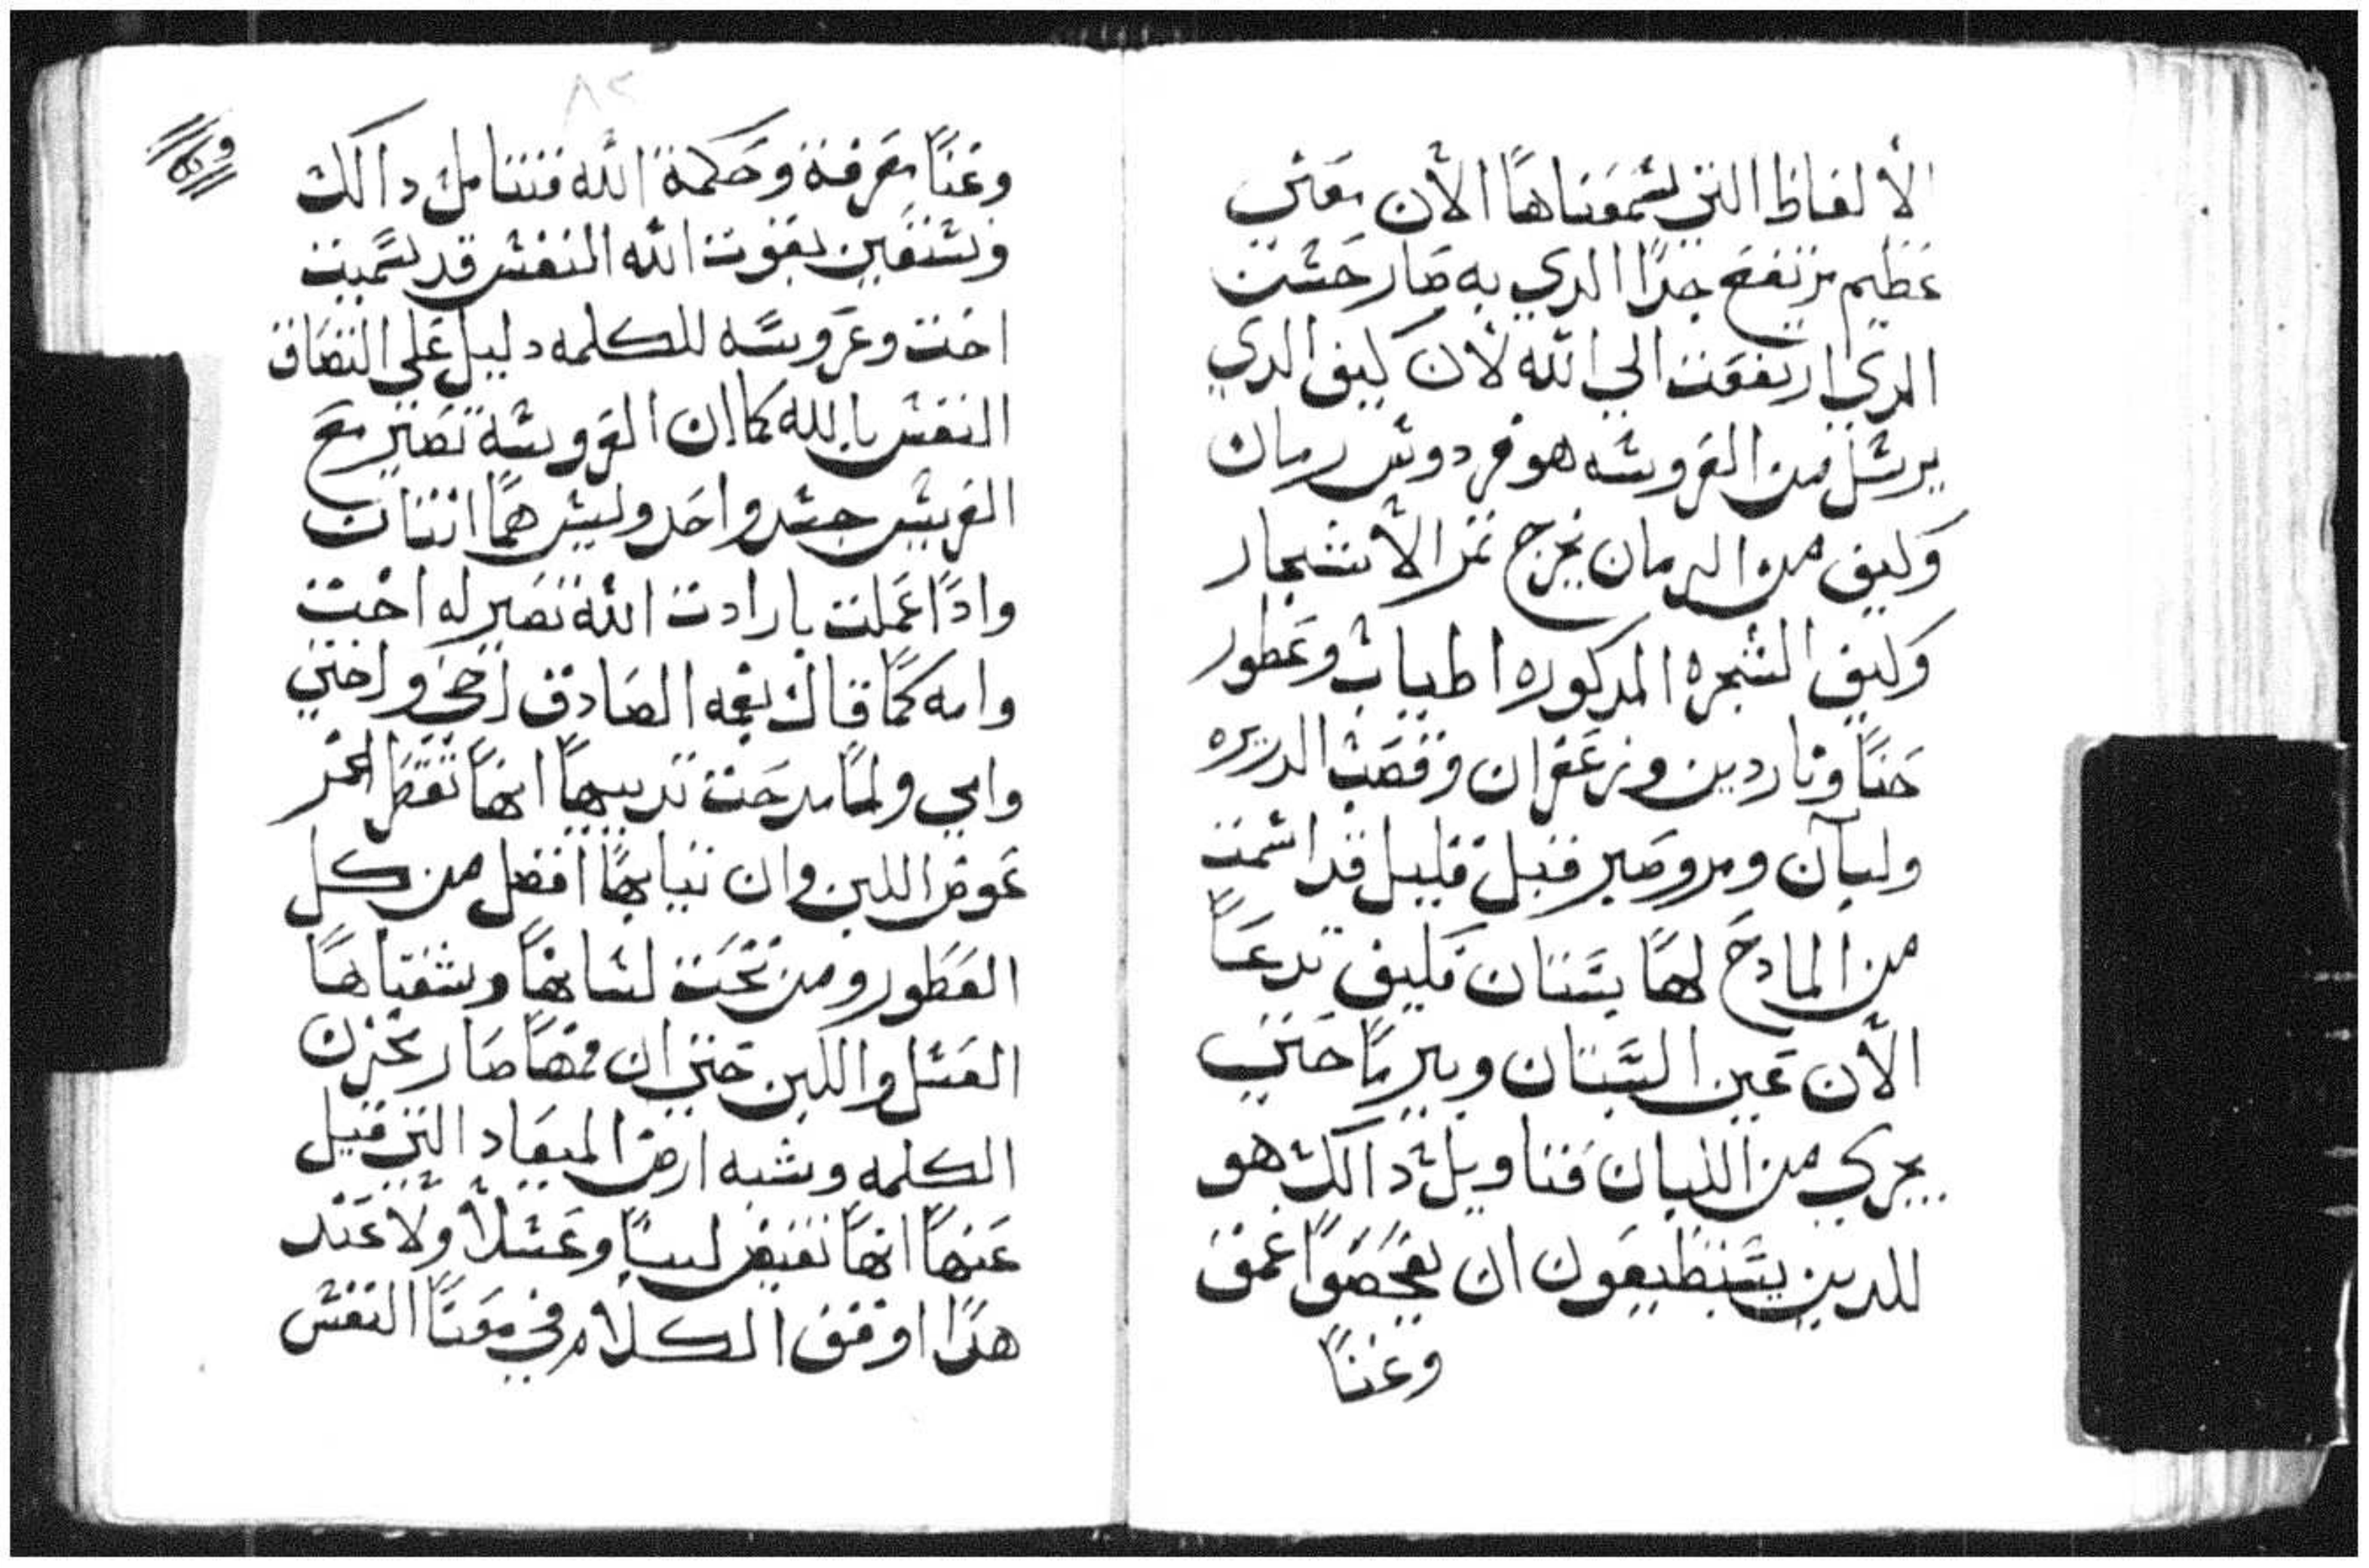 الألفاظ التي نسمعناها الأن معني
عظيم مرتفع جدًا الدي به صار حسنت
الدي ارتفعت الي الله لأن كيف الدي
يرسل من العروسه هو فردوس رمان
وكيف من الرمان يخرج تمر الأشجار
وكيف الشجره المدكوره اطياب وعطور
حنًا وناردين وزعفران وقصب الدريره
ولبآن ومر وصبر قبل قليل قد اسمت
من المادح لهًا بستان فكيف تدعًا
الأن عين البستان وبير ماحتي
يجري من اللبان فتاويل دالك هو
للدين يستطيعون ان يفحصوًا عمق
وغنًا
٨٢
وغنًا معرفة وحكمة الله فنتامل دالك
ونستعين بقوت الله النفس قد سميت
اخت وعروسه للكلمه دليل علي التصاق
النفس بالله كما ان العروسة تصير مع
العريس جسد واحد وليس همًا اتنان
وادًا عملت بارادت الله تصير له اخت
وامه كمًا قال بفمه الصادق اخي واختي
وامي ولمًا مدحت تدييهًا انهًا تقطر الخمر
عوض اللبن وان تيابهًا افضل من كل
العطور ومن تحت لسانهًا وشفتاهًا
العسل واللبن حتي ان فمهًا صار مخزن
الكلمه وشبه ارض الميعاد التي قيل
عنهًا انهًا تفيض لبنًا وعسلاً ولا عند
هدًا اوقف الكلام في معنًا النفس